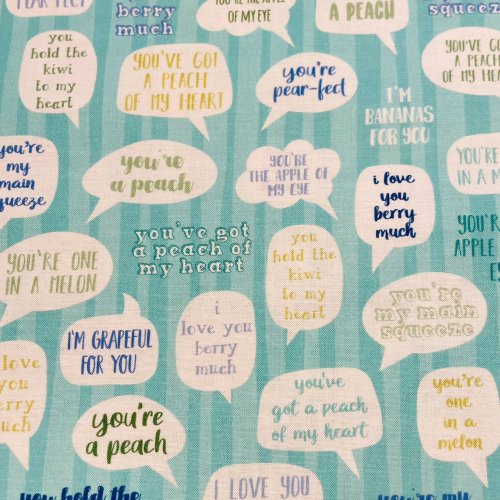 PEAR-FECT
i love you
berry
much
YOU'RE THE APPLE
OF MY EYE
A PEACH
squeeze
you
hold the
kiwi
to my
heart
YOU'VE GOT
A PEACH
OF MY HEART
you're
pear-fect
I'M
BANANAS
FOR YOU
YOU'VE GOT
A PEACH
OF MY HEART
you're
my
main
squeeze
you're
a peach
YOU'RE
THE APPLE OF
MY EYE
i love
you
berry
much
YOU'RE
IN A M
YOU'RE ONE
IN A MELON
you've got
a peach of
my heart
you
hold the
kiwi
to my
heart
YOU'R
APPLE
E
you're
my main
squeeze
I'M GRAPEFUL
FOR YOU
i
love you
berry
much
love
you
berry
much
you're
a peach
you've
got a peach
of my heart
you're
one
in a
melon
you hold the
I LOVE YOU
you're my